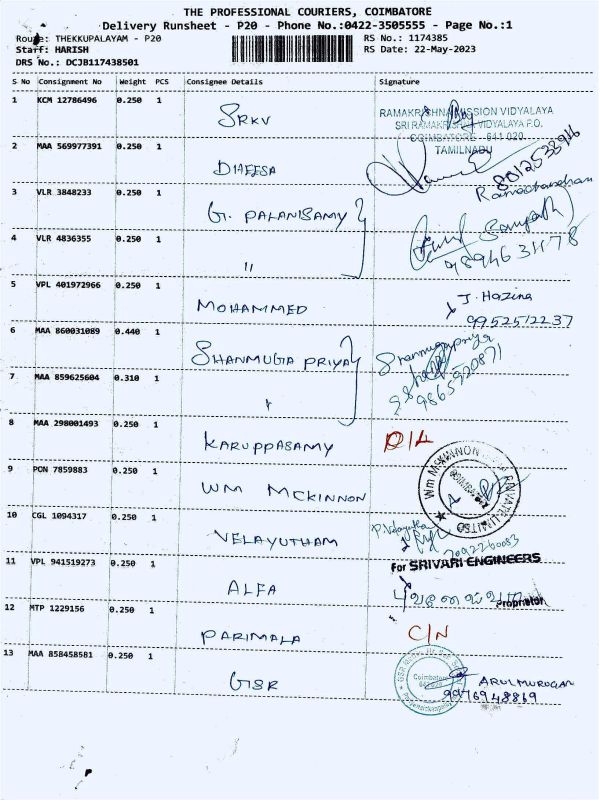 THE PROFESSIONAL COURIERS, COIMBATORE
Delivery Runsheet - P20 - Phone No.:0422-3505555 - Page No.:1
Route: THEKKUPALAYAM - P20 RS No.: 1174385
Staff: HARISH RS Date: 22-May-2023
DRS No.: DCJB117438501
S No Consignment No Weight PCS Consignee Details Signature
1 KCM 12786496 0.250 1 SRKV
RAMAKRISHNA MISSION VIDYALAYA
SRI RAMAKRISHNA VIDYALAYA P.O.
COIMBATORE - 641 020
TAMILNADU
2 MAA 569977391 0.250 1 DHEESA
Ramachandran
3 VLR 3848233 0.250 1 G. PALANISAMY
Sampath
4 VLR 4836355 0.250 1 "
9894631178
5 VPL 401972966 0.250 1 MOHAMMED J. Hazina
9952512237
6 MAA 860031089 0.440 1 SHANMUGA PRIYA Shanmugapriya
9865920871
7 MAA 859625604 0.310 1 "
8 MAA 298001493 0.250 1 KARUPPASAMY D/L
9 PON 7859883 0.250 1 WM MCKINNON
Wm MCKINNON PRIVATE LIMITED
10 CGL 1094317 0.250 1 VELAYUTHAM P. Velayutha
7092260083
11 VPL 941519273 0.250 1 ALFA
For SRIVARI ENGINEERS
Proprietor
12 MTP 1229156 0.250 1 PARIMALA C/N
13 MAA 858458581 0.250 1 GSR
Coimbatore
ARULMURUGAN
9976948869